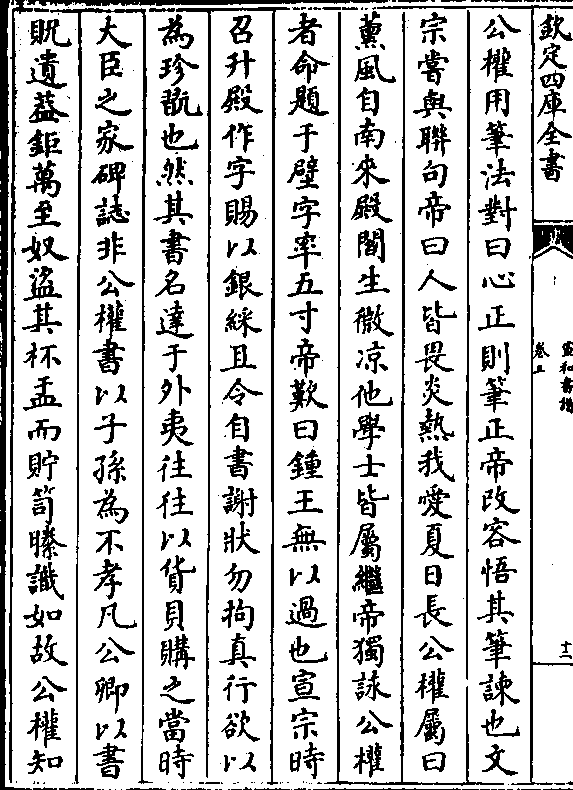 欽定四庫全書
宣和書譜
卷五
十二
公權用筆法對曰心正則筆正帝改容悟其筆諫也文
宗嘗與聯句帝曰人皆畏炎熱我愛夏日長公權屬曰
薰風自南來殿閣生微凉他學士皆屬繼帝獨詠公權
者命題于壁字率五寸帝歎曰鍾王無以過也宣宗時
召升殿作字賜以銀綵且令自書謝狀勿拘真行欲以
為珍翫也然其書名達于外夷往往以貨貝購之當時
大臣之家碑誌非公權書以子孫為不孝凡公卿以書
貺遺葢鉅萬至奴盜其杯盂而貯笥縢識如故公權知